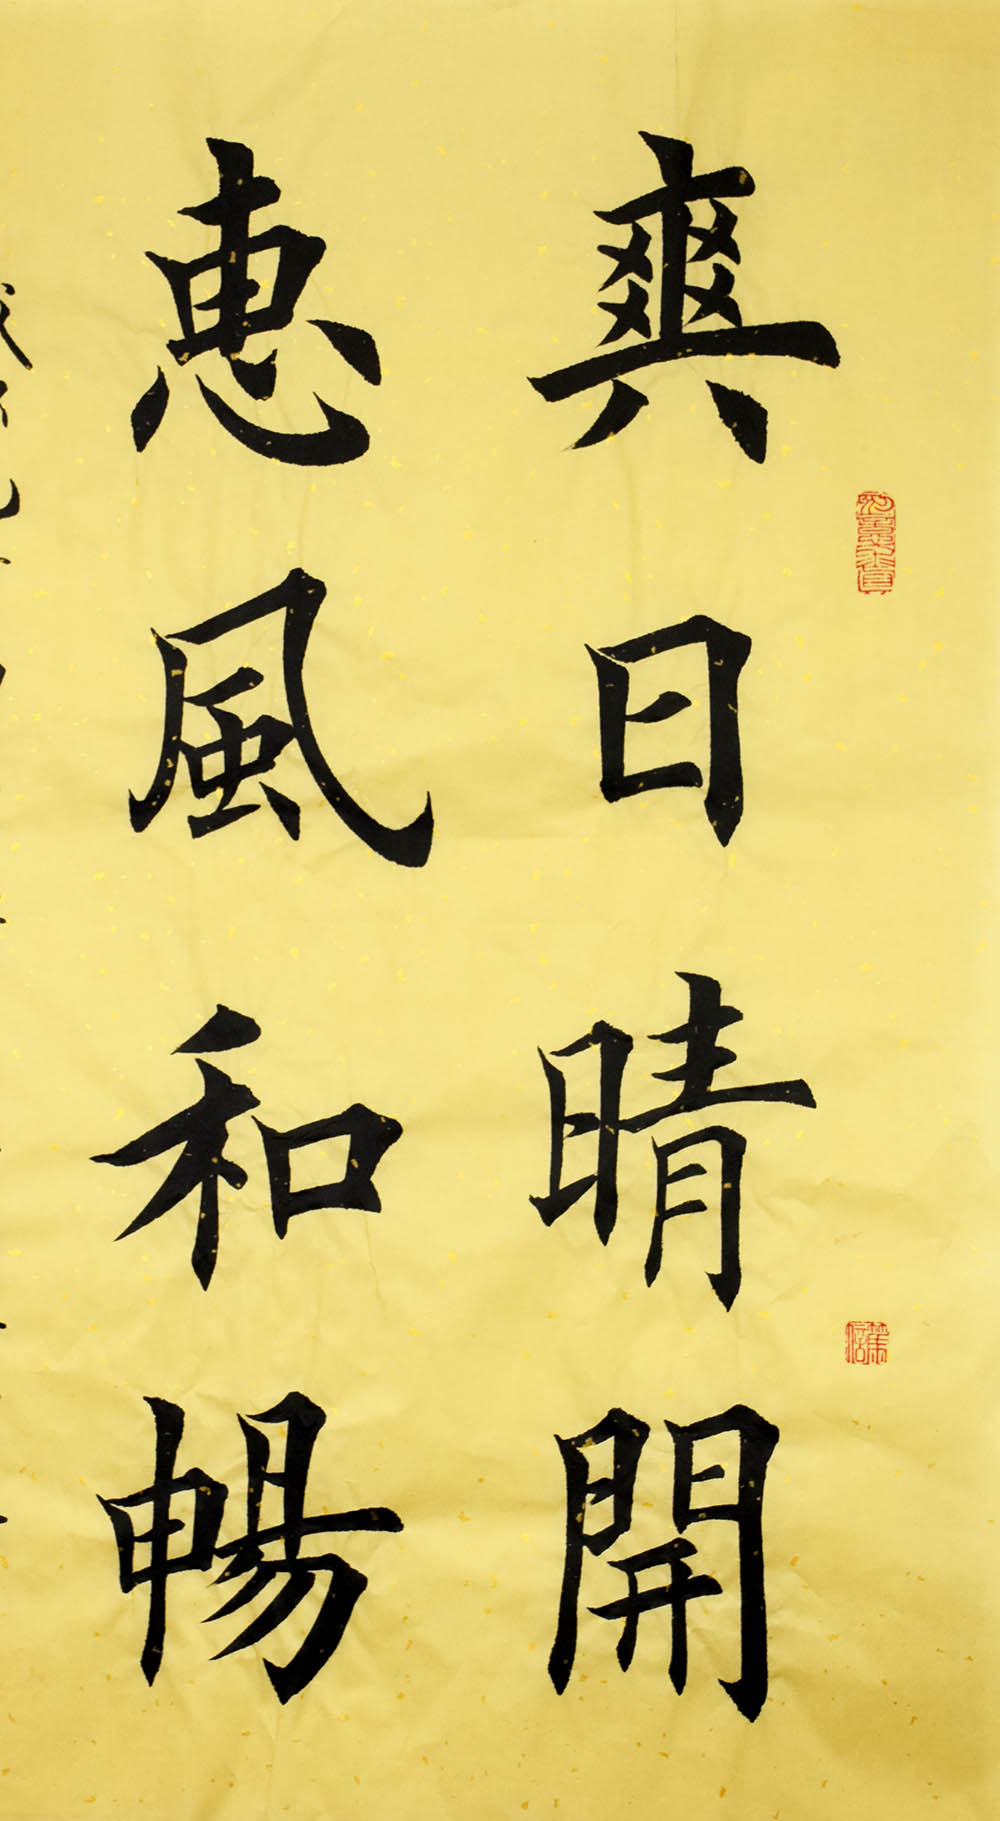 爽日晴開
惠風和暢